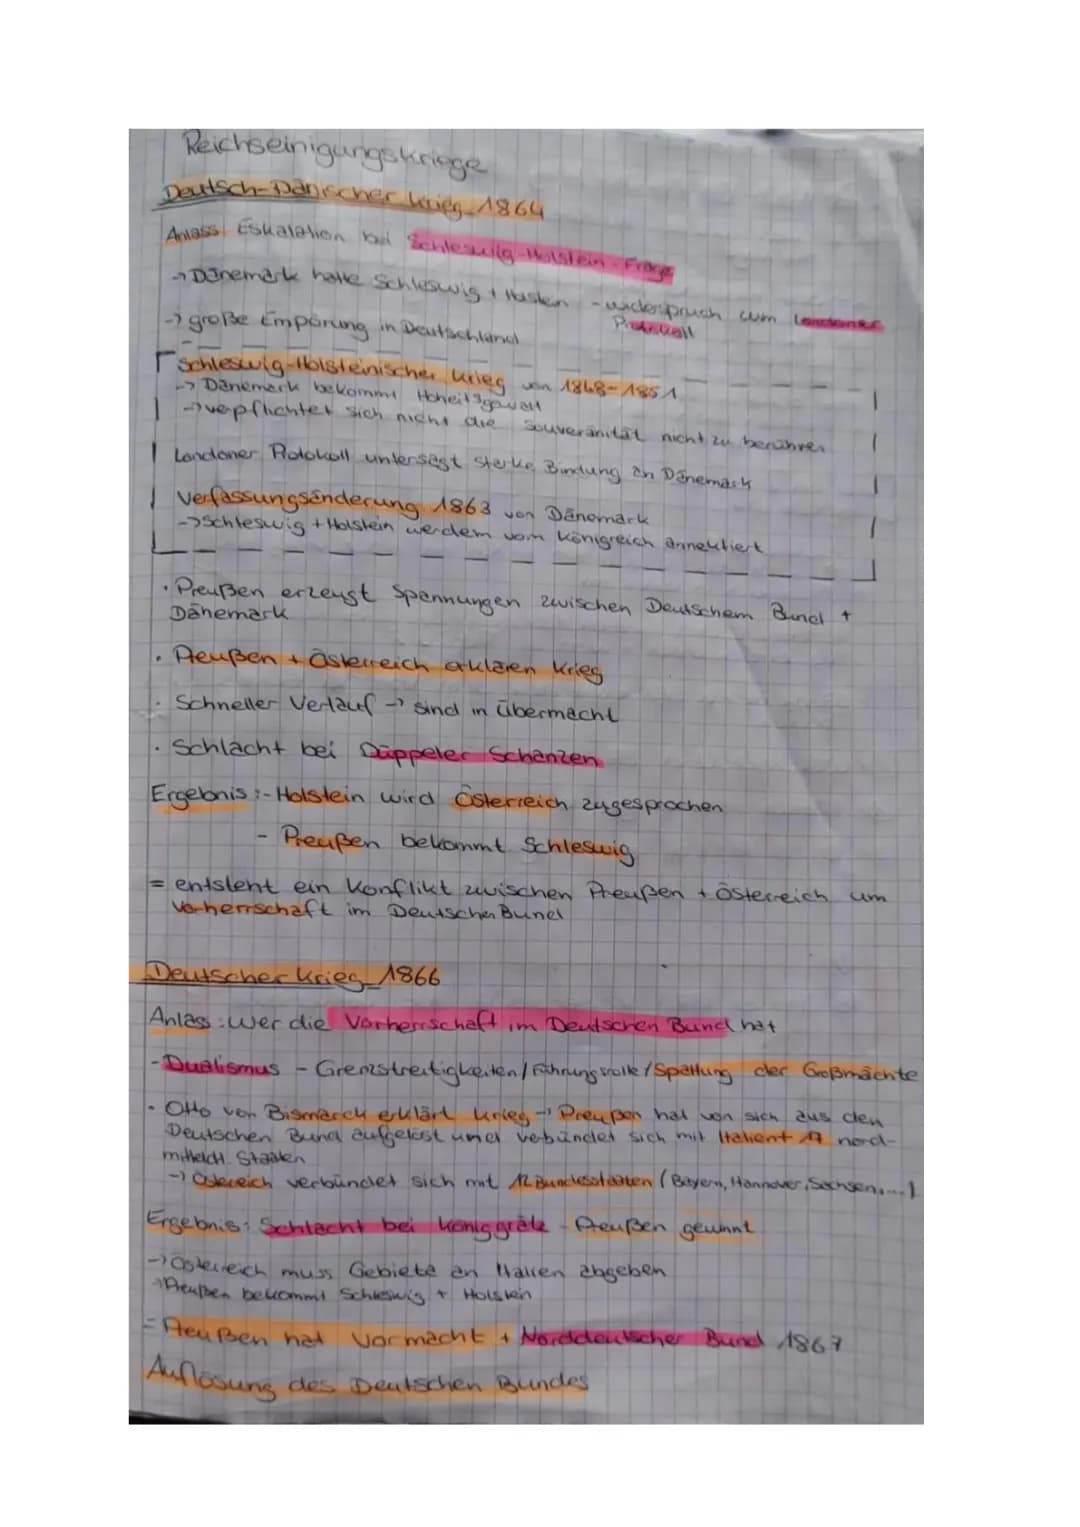 Reichseinigungskriege
Deutsch-Dänischer Krieg 1864
Anlass: Eskalation bei Schleswig-Holstein-Frage
-> Dänemark hatte Schleswig + Holstein - widerspruch zum Londoner
Protokoll
-> große Empörung in Deutschland
Schleswig-Holsteinischer Krieg von 1848-1851
-> Dänemark bekommt Hoheitsgewalt
-> verpflichtet sich nicht die Souveränität nicht zu berühren
Londoner Protokoll untersagt starke Bindung an Dänemark
Verfassungsänderung 1863 von Dänemark
-> Schleswig + Holstein werdem vom Königreich annektiert
· Preußen erzeugt Spannungen zwischen Deutschem Bund +
Dänemark
· Preußen + Österreich erklären Krieg
· Schneller Verlauf -> sind in Übermacht
· Schlacht bei Düppeler Schanzen
Ergebnis: - Holstein wird Österreich zugesprochen
- Preußen bekommt Schleswig
= entsteht ein Konflikt zwischen Preußen + Österreich um
Vorherrschaft im Deutschen Bund
Deutscher Krieg 1866
Anlass: Wer die Vorherrschaft im Deutschen Bund hat
- Dualismus - Grenzstreitigkeiten / Führungsrolle / Spaltung der Großmächte
· Otto von Bismarck erklärt Krieg -> Preußen hat von sich aus den
Deutschen Bund aufgelöst und verbündet sich mit Italien + 17 nord-
mitteldt. Staaten
-> Östereich verbündet sich mit 12 Bundesstaaten (Bayern, Hannover, Sachsen,...)
Ergebnis: Schlacht bei Königgrätz - Preußen gewinnt
-> Österreich muss Gebiete an Italien abgeben
-> Preußen bekommt Schleswig + Holstein
= Preußen hat Vormacht + Norddeutscher Bund 1867
Auflösung des Deutschen Bundes